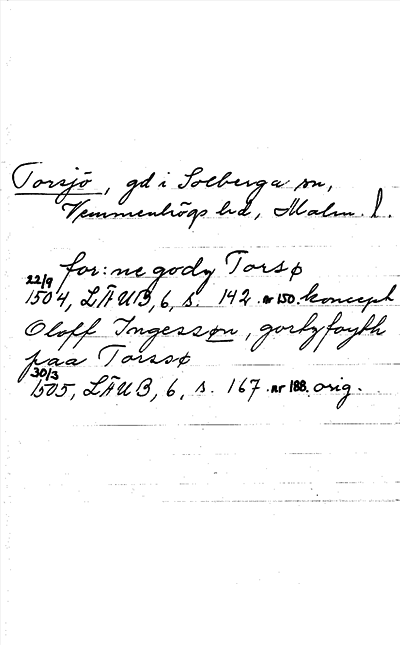 Torsjö, gd i Solberga sn,
Vemmenhögs hd, Malm. l.
for:ne gody Torsø
22/9
1504, LÄUB, 6, s. 142. nr 150. koncept
Oloff Ingessøn, gordzfoyth
paa Torssø
30/3
1505, LÄUB, 6, s. 167. nr 188. orig.